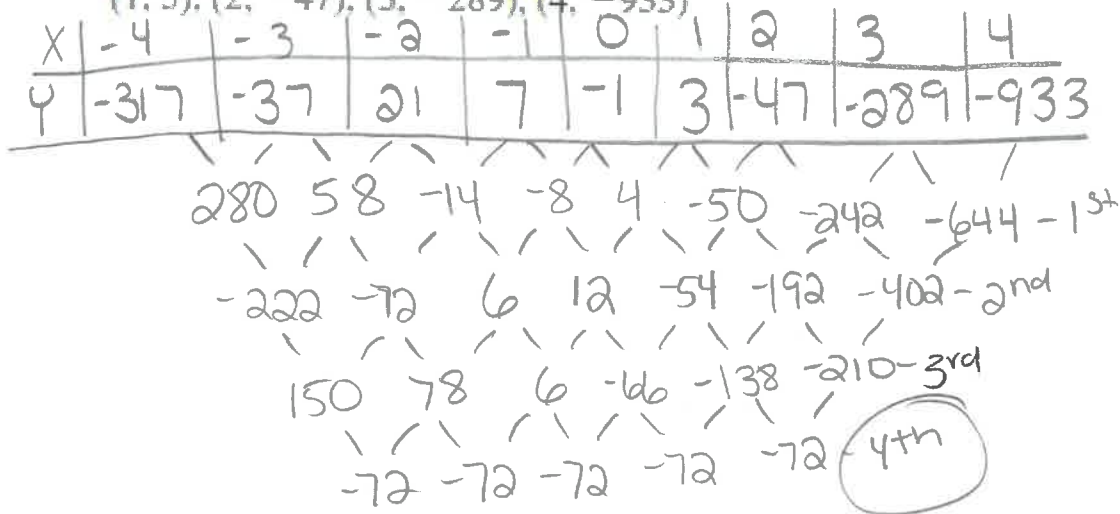 X -4 -3 -2 -1 0 1 2 3 4
Y -317 -37 21 7 -1 3 -47 -289 -933
280 58 -14 -8 4 -50 -242 -644 - 1st
-222 -72 6 12 -54 -192 -402 - 2nd
150 78 6 -66 -138 -210 - 3rd
-72 -72 -72 -72 -72 - 4th